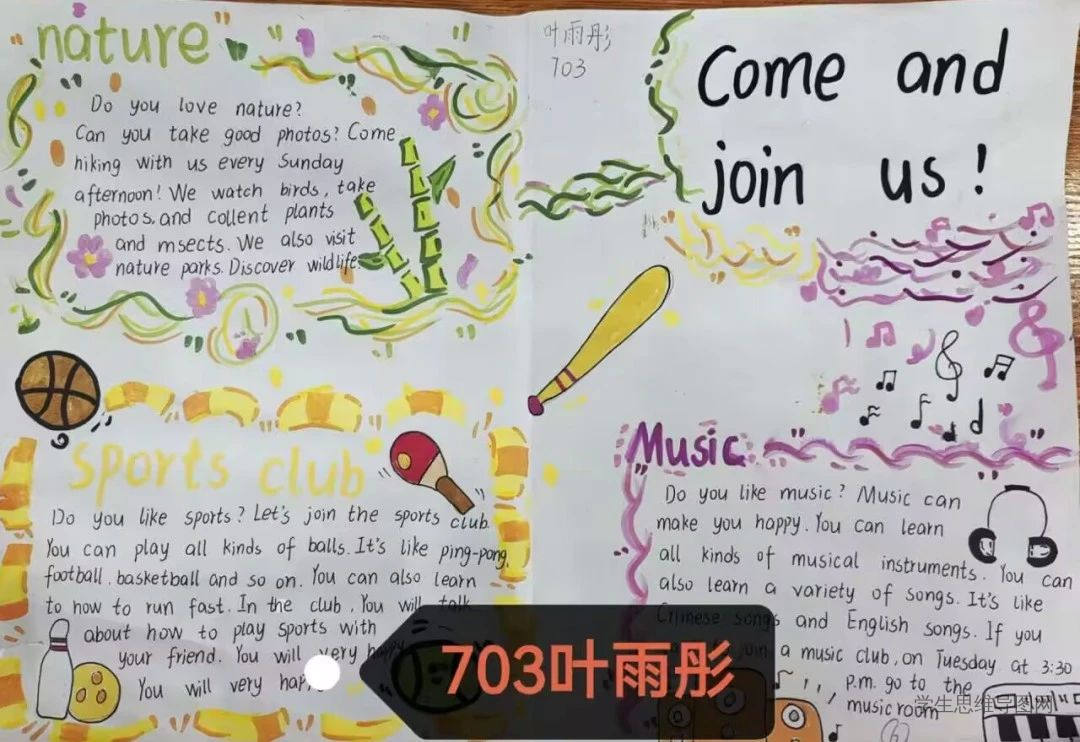 nature
Do you love nature?
Can you take good photos? Come
hiking with us every Sunday
afternoon! We watch birds, take
photos, and collent plants
and msects. We also visit
nature parks. Discover wildlife.
叶雨彤
703
Come and
join us!
sports club
Do you like sports? Let's join the sports club.
You can play all kinds of balls. It's like ping-pong,
football, basketball and so on. You can also learn
to how to run fast. In the club, You will talk
about how to play sports with
your friend. You will very happy
You will very
Music
Do you like music? Music can
make you happy. You can learn
all kinds of musical instruments. You can
also learn a variety of songs. It's like
Chinese songs and English songs. If you
join a music club, on Tuesday at 3:30
p.m. go to the
music room
703叶雨彤
学生思维导图网